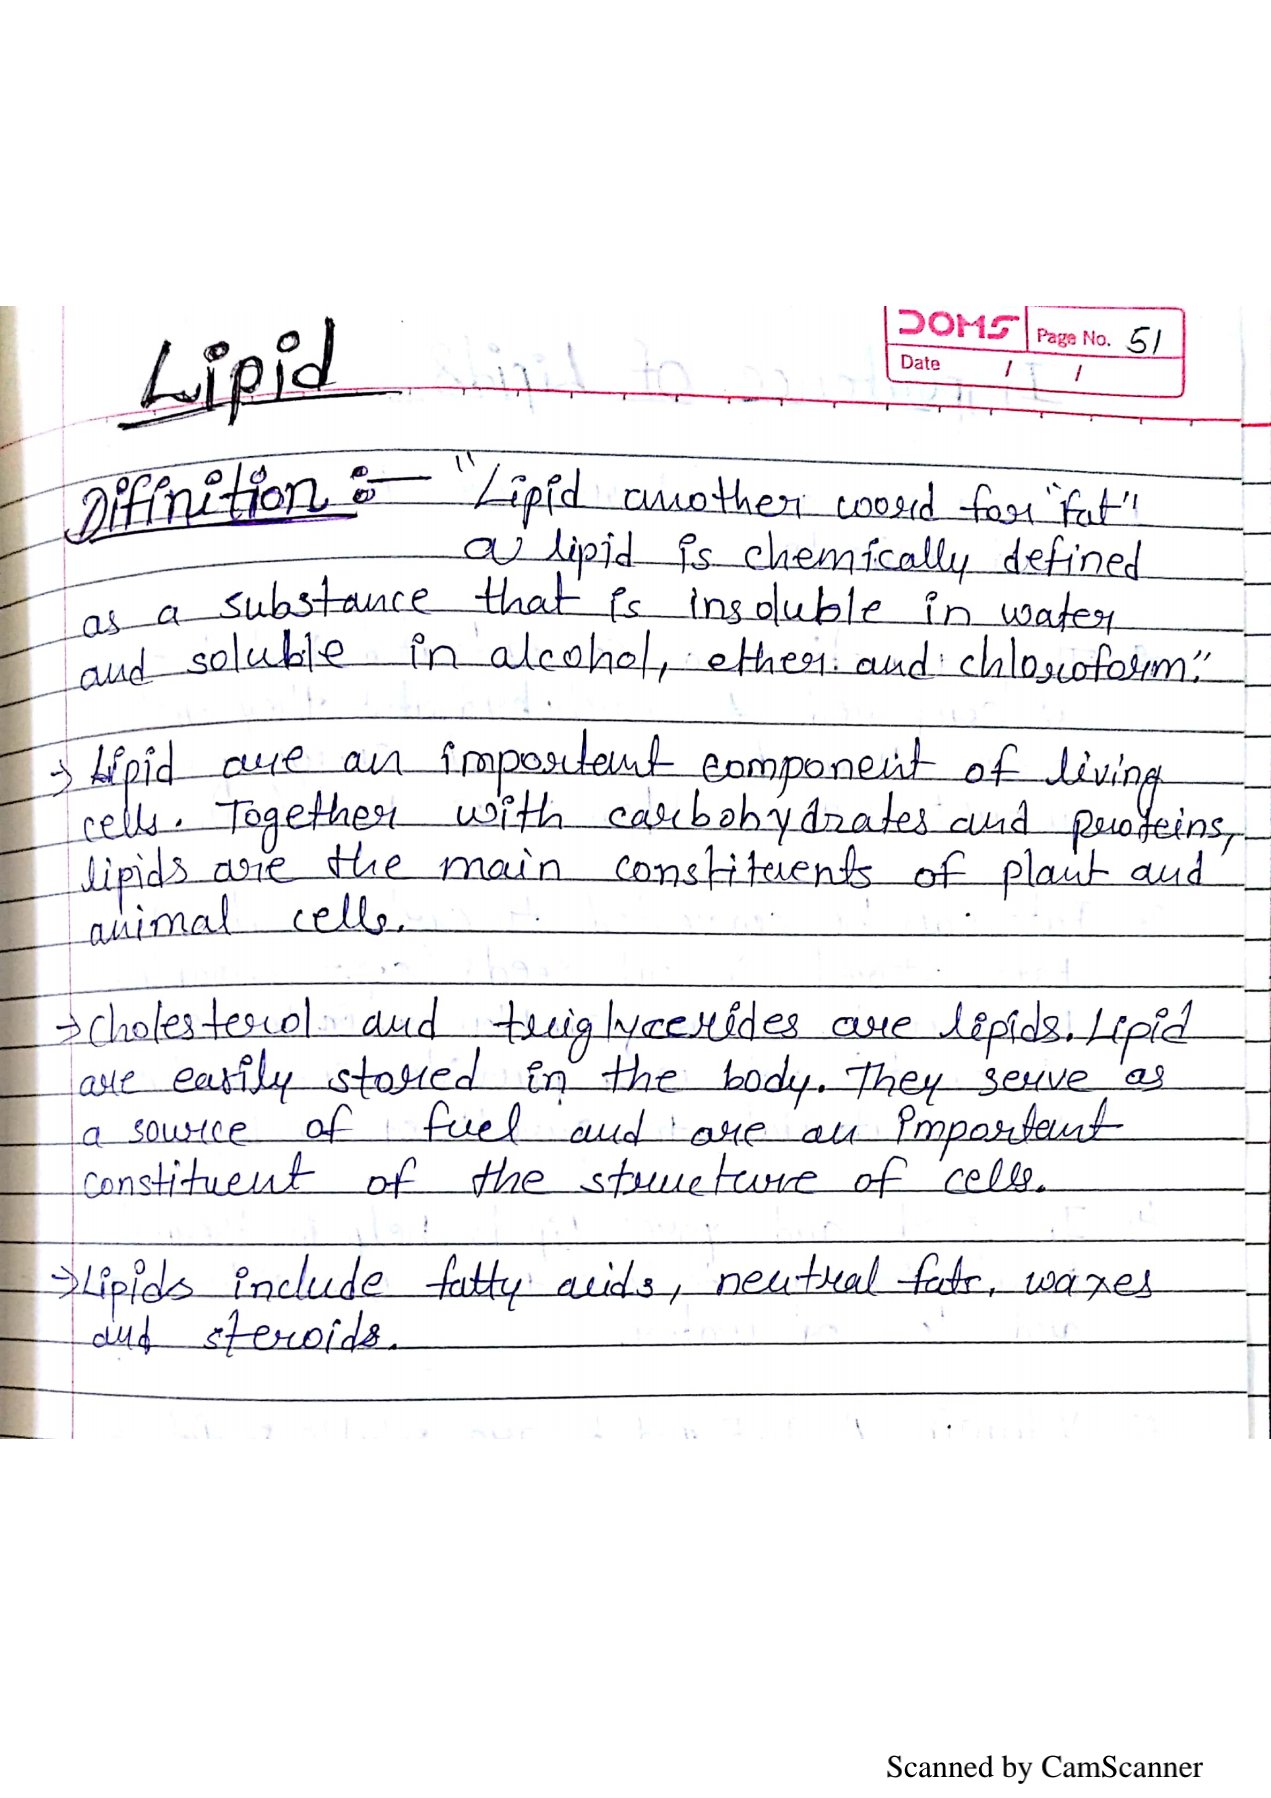 DOMS
Page No. 51
Date / /
Lipid
Difinition :- "Lipid another word for "fat"
a lipid is chemically defined
as a substance that is insoluble in water
and soluble in alcohol, ether and chloroform."
→ Lipid are an important component of living
cells. Together with carbohydrates and proteins,
lipids are the main constituents of plant and
animal cells.
→ Cholesterol and triglycerides are lipids. Lipid
are easily stored in the body. They serve as
a source of fuel and are an important
constituent of the structure of cells.
→ Lipids include fatty acids, neutral fats, waxes
and steroids.
Scanned by CamScanner